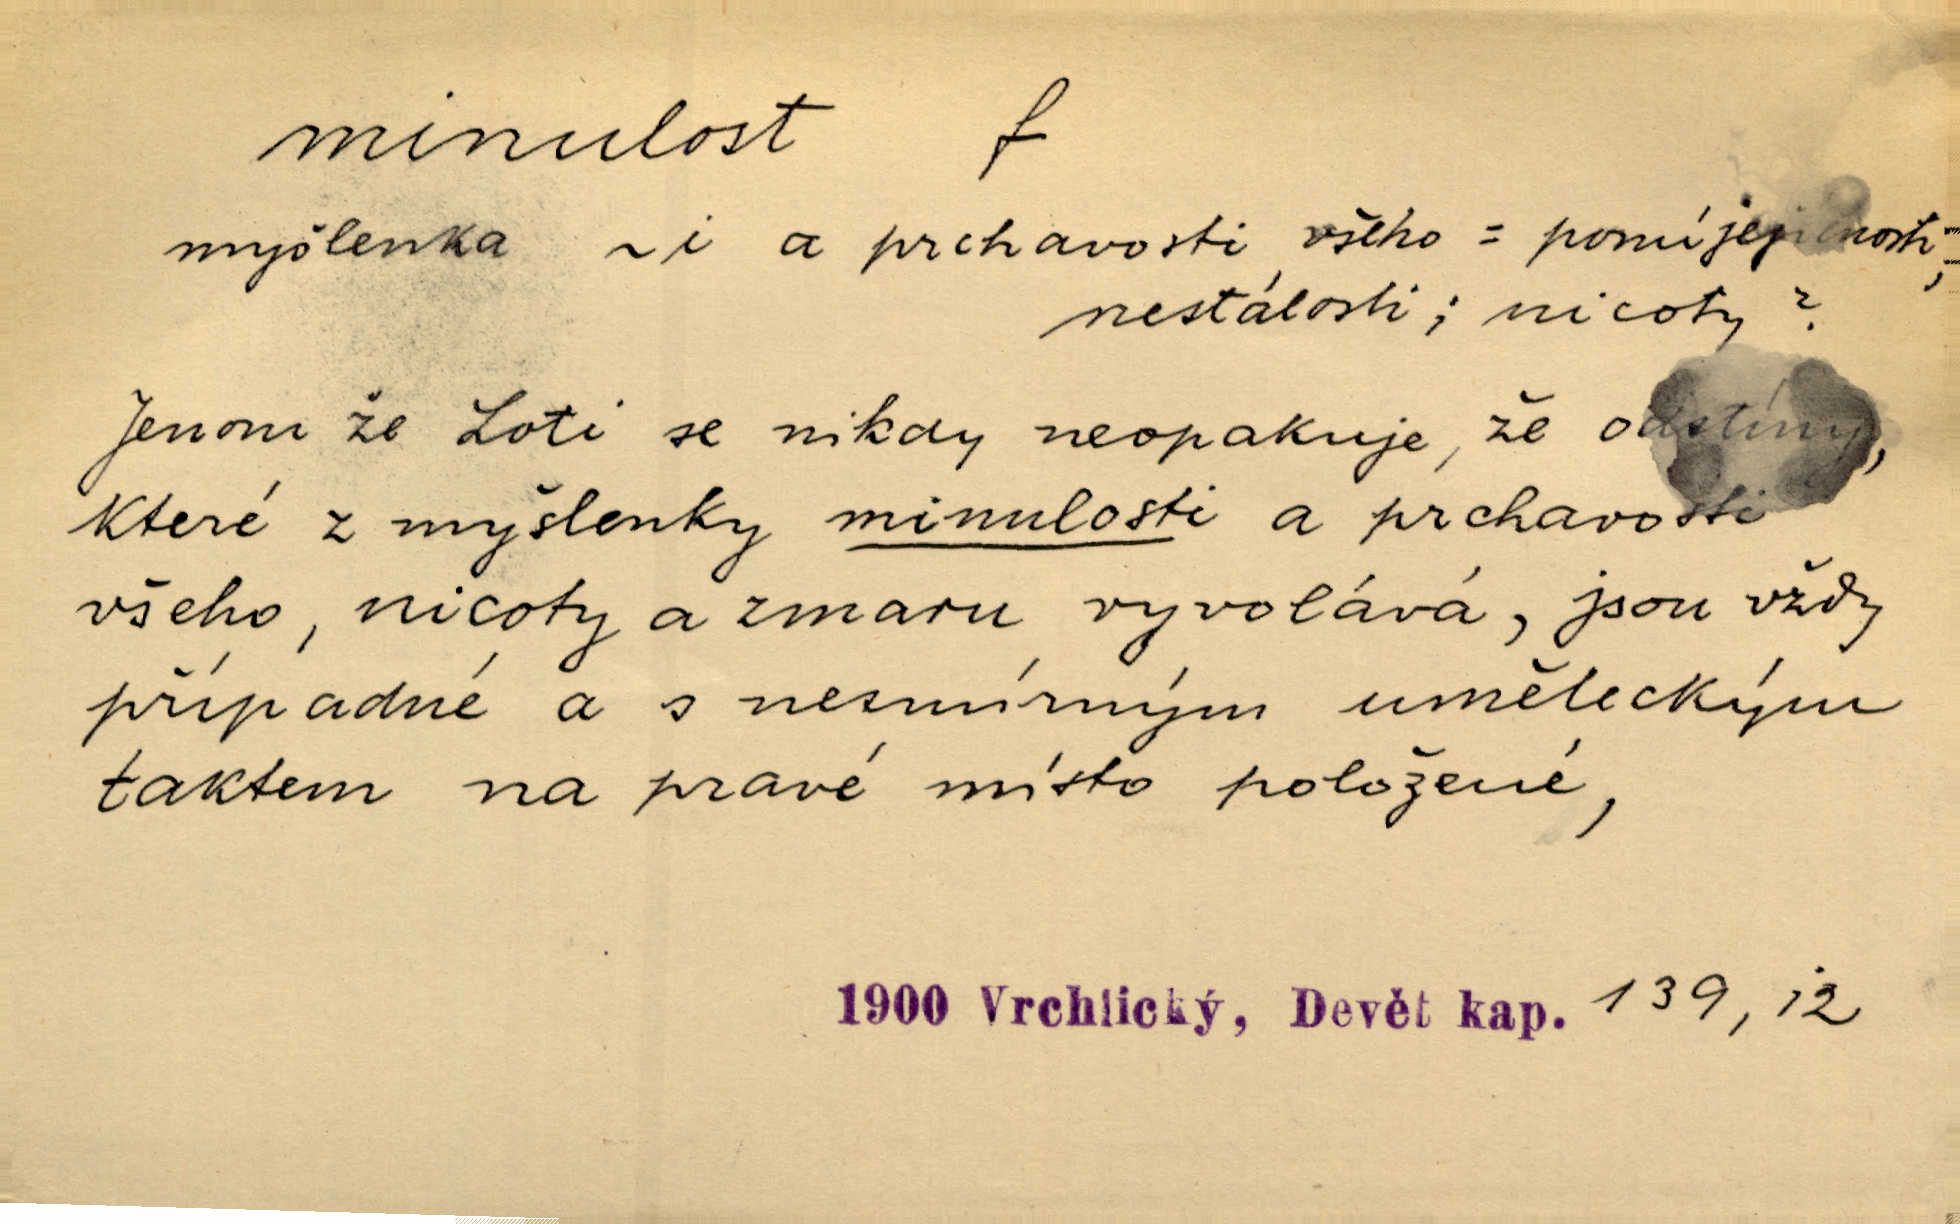 minulost f
myšlenka ~i a prchavosti všeho = pomíjejícnosti,
nestálosti; nicoty?
Jenom že Loti se nikdy neopakuje, že odstíny,
které z myšlenky minulosti a prchavosti
všeho, nicoty a zmaru vyvolává, jsou vždy
případné a s nesmírným uměleckým
taktem na pravé místo položené,
1900 Vrchlický, Devět kap. 139, i2